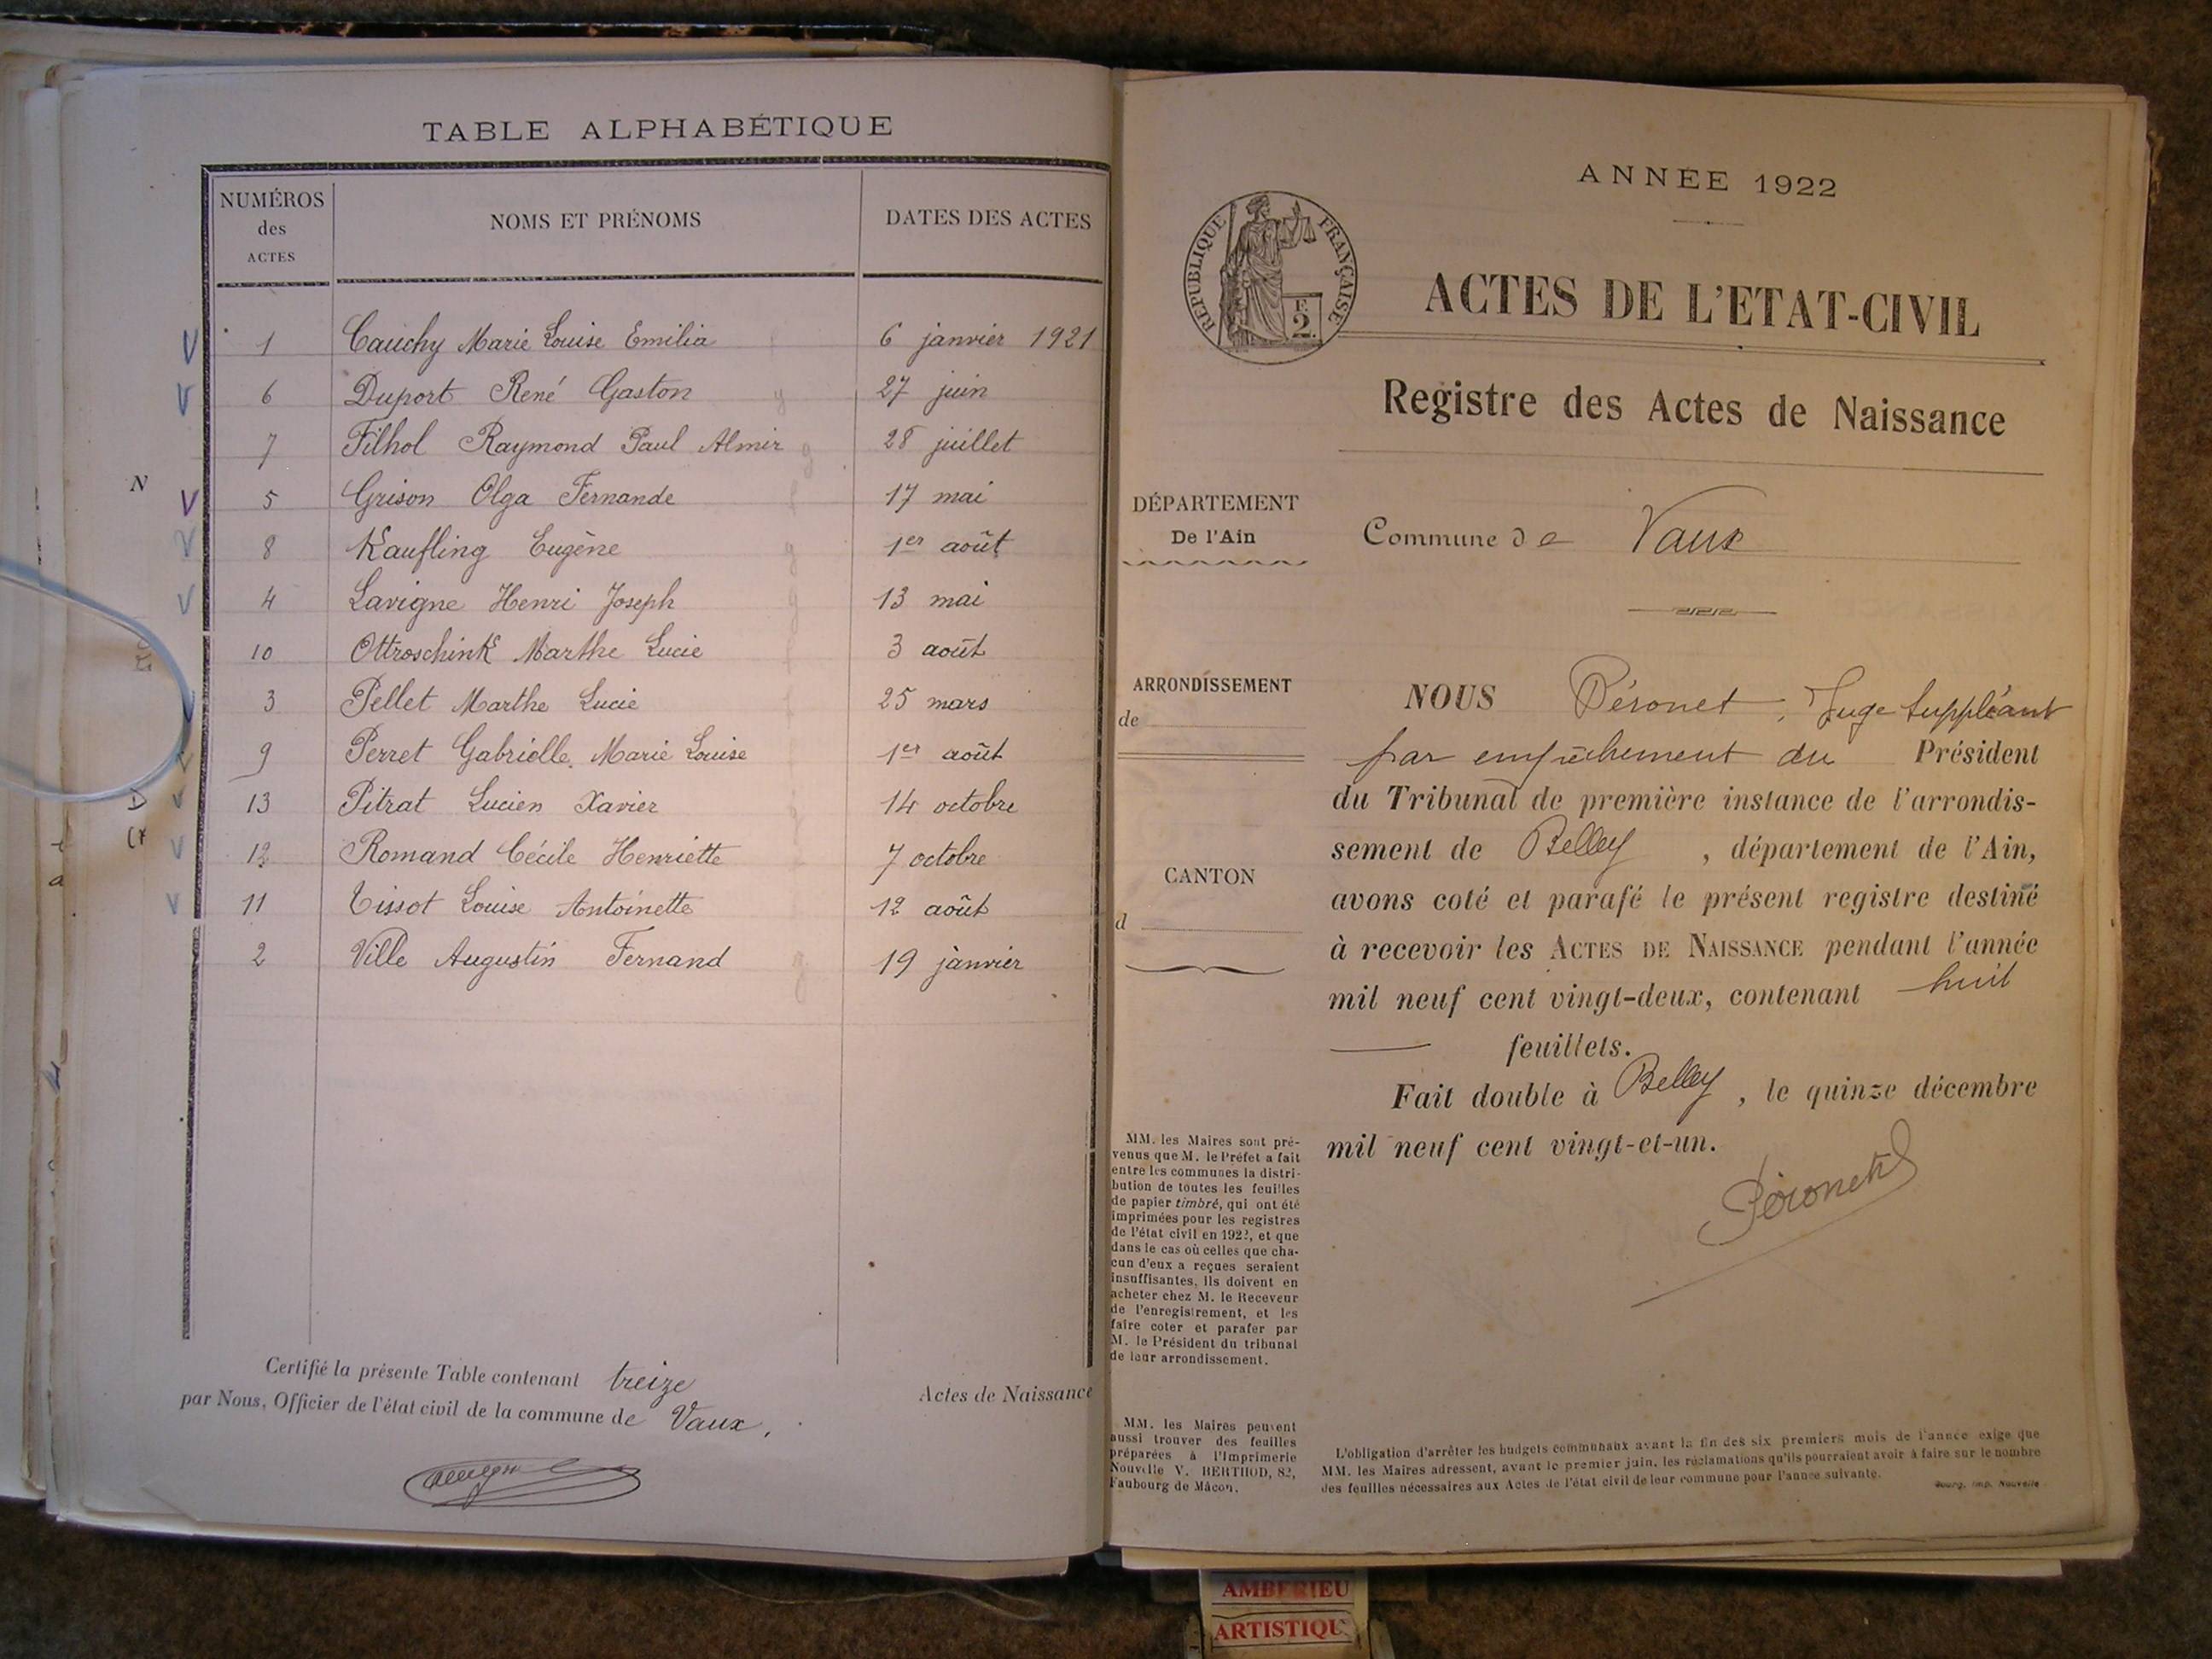 TABLE ALPHABÉTIQUE
NUMÉROS des ACTES NOMS ET PRÉNOMS DATES DES ACTES
V 1 Cauchy Marie Louise Emilia f 6 janvier 1921
V 6 Duport René Gaston g 27 juin
7 Filhol Raymond Paul Almir g 28 juillet
N V 5 Grison Olga Fernande f 17 mai
V 8 Kaufling Eugène g 1er août
V 4 Lavigne Henri Joseph g 13 mai
10 Ottroschink Marthe Lucie f 3 août
3 Pellet Marthe Lucie f 25 mars
9 Perret Gabrielle Marie Louise 1er août
V 13 Pitrat Lucien Xavier g 14 octobre
V 12 Romand Cécile Henriette 7 octobre
V 11 Tissot Louise Antoinette 12 août
2 Ville Augustin Fernand g 19 janvier
Certifié la présente Table contenant treize Actes de Naissance
par Nous, Officier de l'état civil de la commune de Vaux.
ANNÉE 1922
RÉPUBLIQUE FRANÇAISE
F. 2
ACTES DE L'ETAT-CIVIL
Registre des Actes de Naissance
DÉPARTEMENT
De l'Ain
Commune de Vaux
ARRONDISSEMENT
de
CANTON
d
NOUS Péronet, Juge Suppléant
par empêchement du Président
du Tribunal de première instance de l'arrondis-
sement de Belley, département de l'Ain,
avons coté et parafé le présent registre destiné
à recevoir les ACTES DE NAISSANCE pendant l'année
mil neuf cent vingt-deux, contenant huit
feuillets.
Fait double à Belley, le quinze décembre
mil neuf cent vingt-et-un.
Péronet
MM. les Maires sont pré-
venus que M. le Préfet a fait
entre les communes la distri-
bution de toutes les feuilles
de papier timbré, qui ont été
imprimées pour les registres
de l'état civil en 1922, et que
dans le cas où celles que cha-
cun d'eux a reçues seraient
insuffisantes, ils doivent en
acheter chez M. le Receveur
de l'enregistrement, et les
faire coter et parafer par
M. le Président du tribunal
de leur arrondissement.
MM. les Maires peuvent
aussi trouver des feuilles
préparées à l'Imprimerie
Nouvelle V. BERTHOD, 82,
Faubourg de Mâcon.
L'obligation d'arrêter les budgets communaux avant la fin des six premiers mois de l'année exige que
MM. les Maires adressent, avant le premier juin, les réclamations qu'ils pourraient avoir à faire sur le nombre
des feuilles nécessaires aux Actes de l'état civil de leur commune pour l'année suivante.
Bourg, Imp. Nouvelle
AMBERIEU
ARTISTIQU